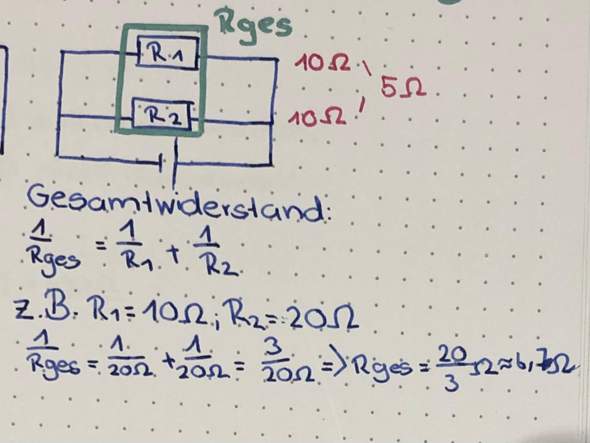 Rges
R1 10Ω
5Ω
R2 10Ω
Gesamtwiderstand:
1/Rges = 1/R1 + 1/R2
z.B. R1 = 10Ω; R2 = 20Ω
1/Rges = 1/20Ω + 1/20Ω = 3/20Ω => Rges = 20/3 Ω ≈ 6,7Ω